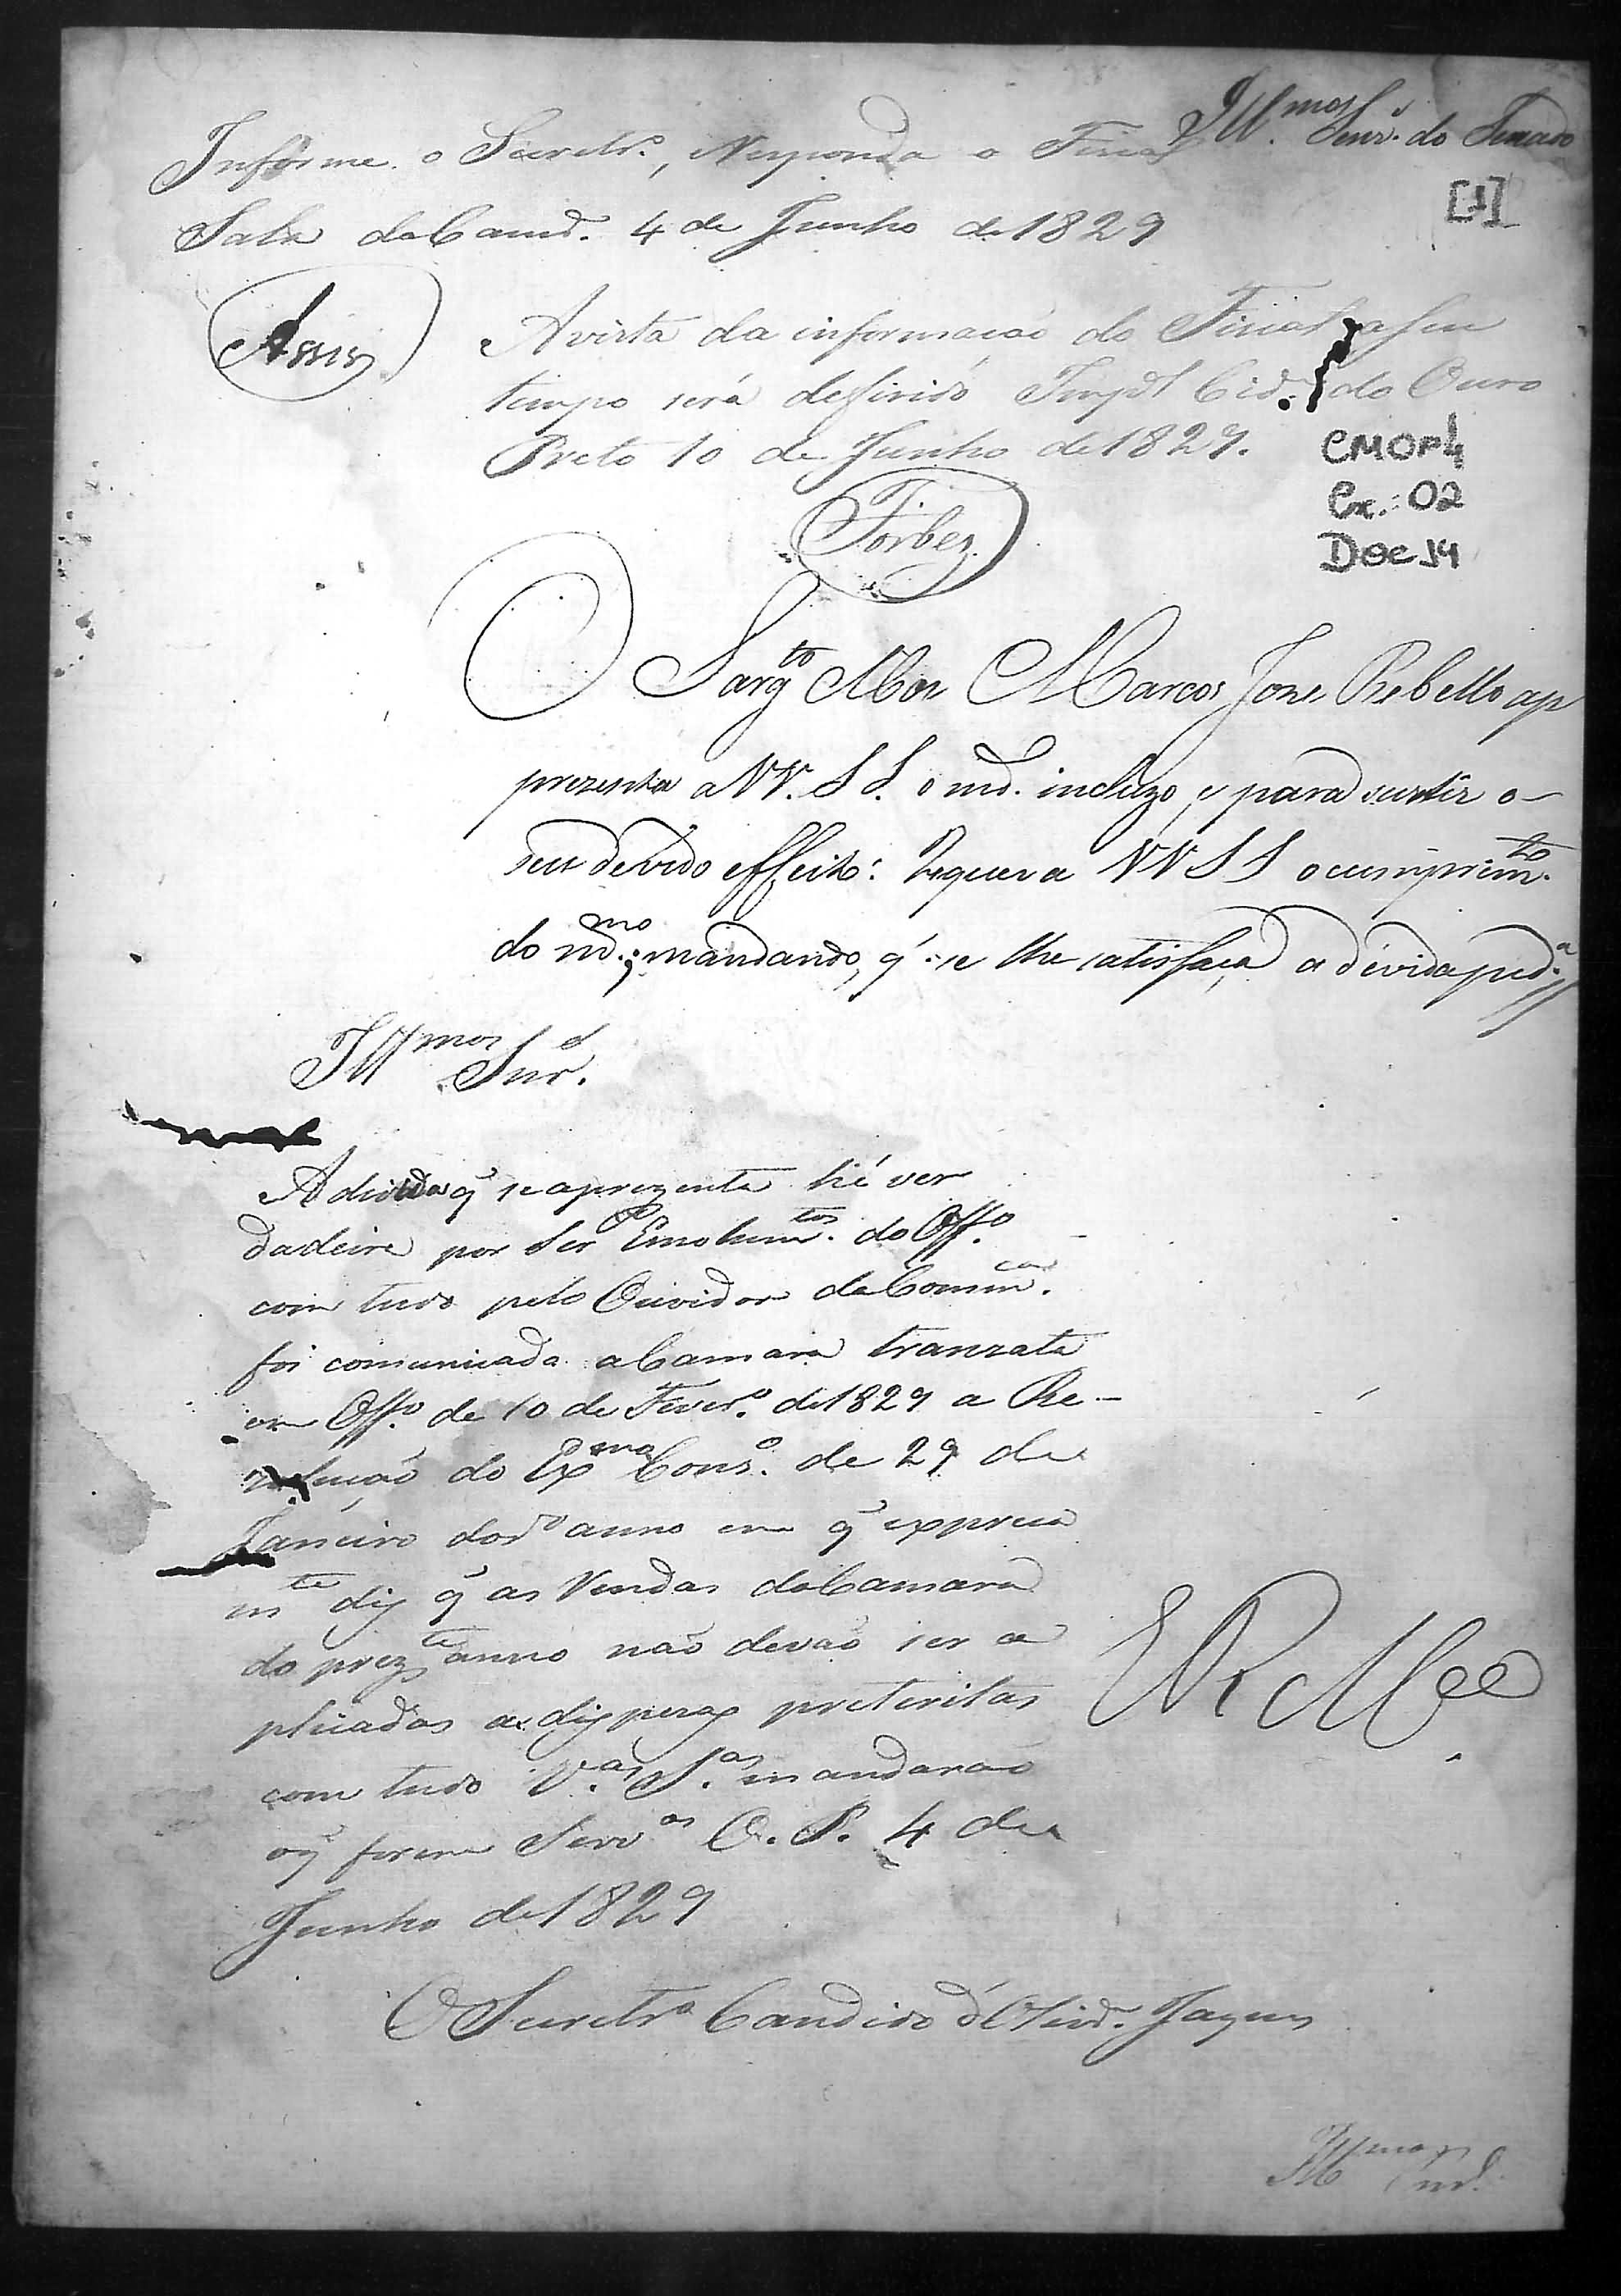 Ill.mos Senr.s do Senado
Informe o Secretr.o, Responda o Fiscal
Sala da Camr.a 4 de Junho de 1829
[1]
Assis
Avista da informação do Fiscal, a seu
tempo será defirido Imp.al Cid.e do Ouro
Preto 10 de Junho de 1829.
CMOP4
Cx.: 02
Doc 14
Forbes
O Sarg.to Mor Marcos Joze Rebello ap
prezenta a VV. SS. o md. incluzo, e para surtir o
seu devido effeito: Requer a VV SS o cumprim.to
do md. mo; mandando, q' se lhe satisfaça a devida ped.a
Ill.mos Snr.s
A divida q̃ se aprezenta hé ver
dadeira por ser Emolum.tos do Off.o
com tudo pelo Ouvidor da Comm.ca
foi comunicada a Camara tranzata
em Off.o de 10 de Fever.o de 1829 a Re-
zolução do Ex.mo Cons.o de 29 de
Janeiro do d.o anno em q̃ expreça
m.te diz q̃ as Rendas da Camara
do prez.te anno não devão ser a
plicadas as dispezas preteritas
com tudo V.as S.as mandarão
o q̃ forem Serv.os O. P. 4 de
Junho de 1829
E R M.ce
O Secretr.o Candido d'Olivr.a Jaques
Ill.mos Snr.s